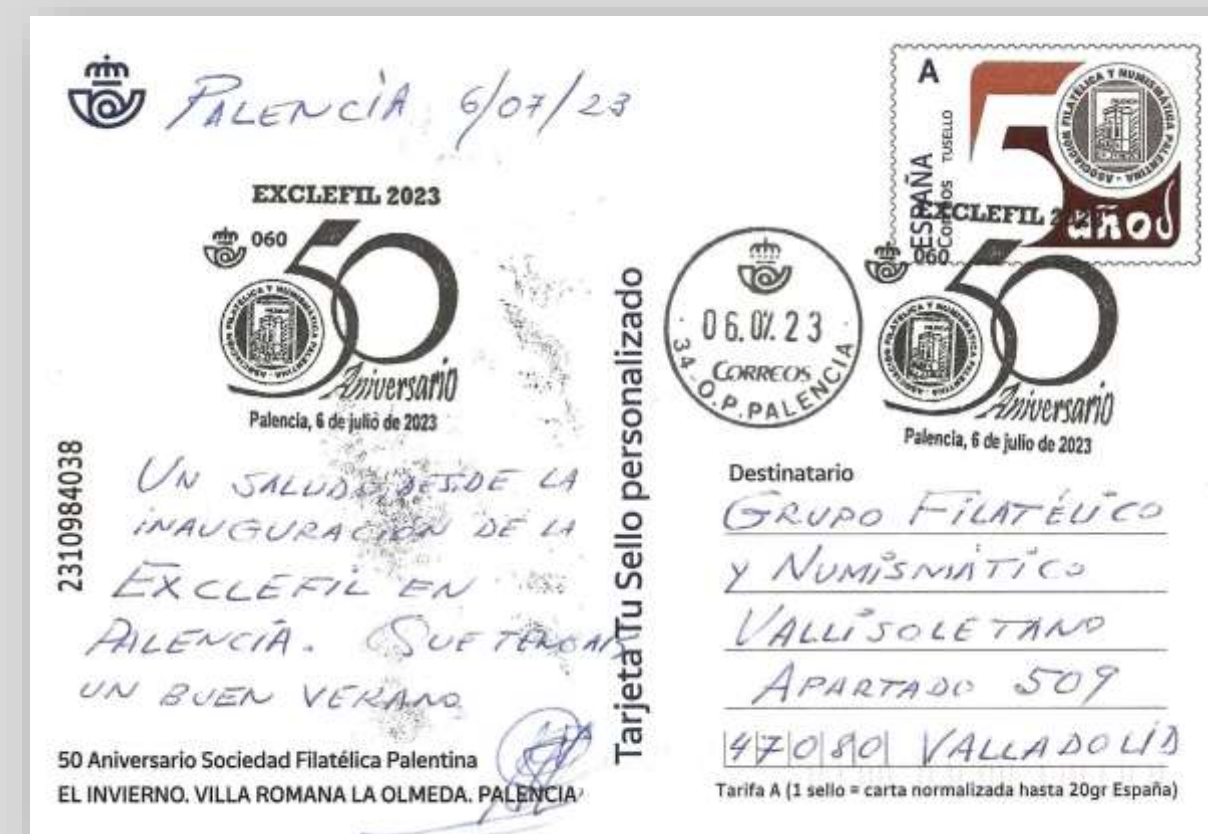 PALENCIA 6/07/23
EXCLEFIL 2023
060
50
ASOCIACIÓN FILATÉLICA Y NUMISMÁTICA PALENTINA
Aniversario
Palencia, 6 de julio de 2023
2310984038
UN SALUDO DESDE LA
INAUGURACIÓN DE LA
EXCLEFIL EN
PALENCIA. QUE TENGAIS
UN BUEN VERANO
50 Aniversario Sociedad Filatélica Palentina
EL INVIERNO. VILLA ROMANA LA OLMEDA. PALENCIA
Tarjeta Tu Sello personalizado
A
ESPAÑA
CORREOS TUSELLO
50 años
ASOCIACIÓN FILATÉLICA Y NUMISMÁTICA PALENTINA
06.07.23
CORREOS
34-O.P. PALENCIA
EXCLEFIL 2023
060
50
ASOCIACIÓN FILATÉLICA Y NUMISMÁTICA PALENTINA
Aniversario
Palencia, 6 de julio de 2023
Destinatario
GRUPO FILATÉLICO
Y NUMISMÁTICO
VALLISOLETANO
APARTADO 509
47080 VALLADOLID
Tarifa A (1 sello = carta normalizada hasta 20gr España)